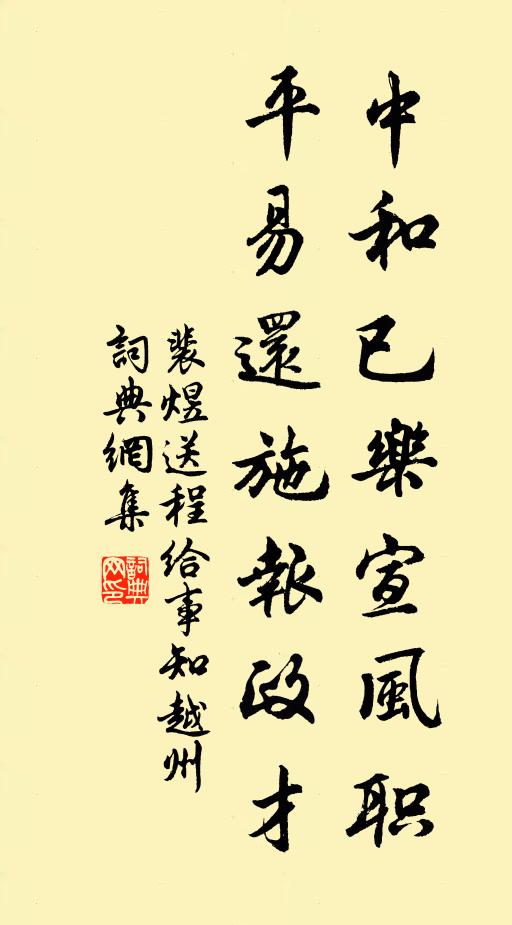 中和已樂宣風职
平易還施報政才
裴煜送程给事知越州
詞典網集
詞典网印